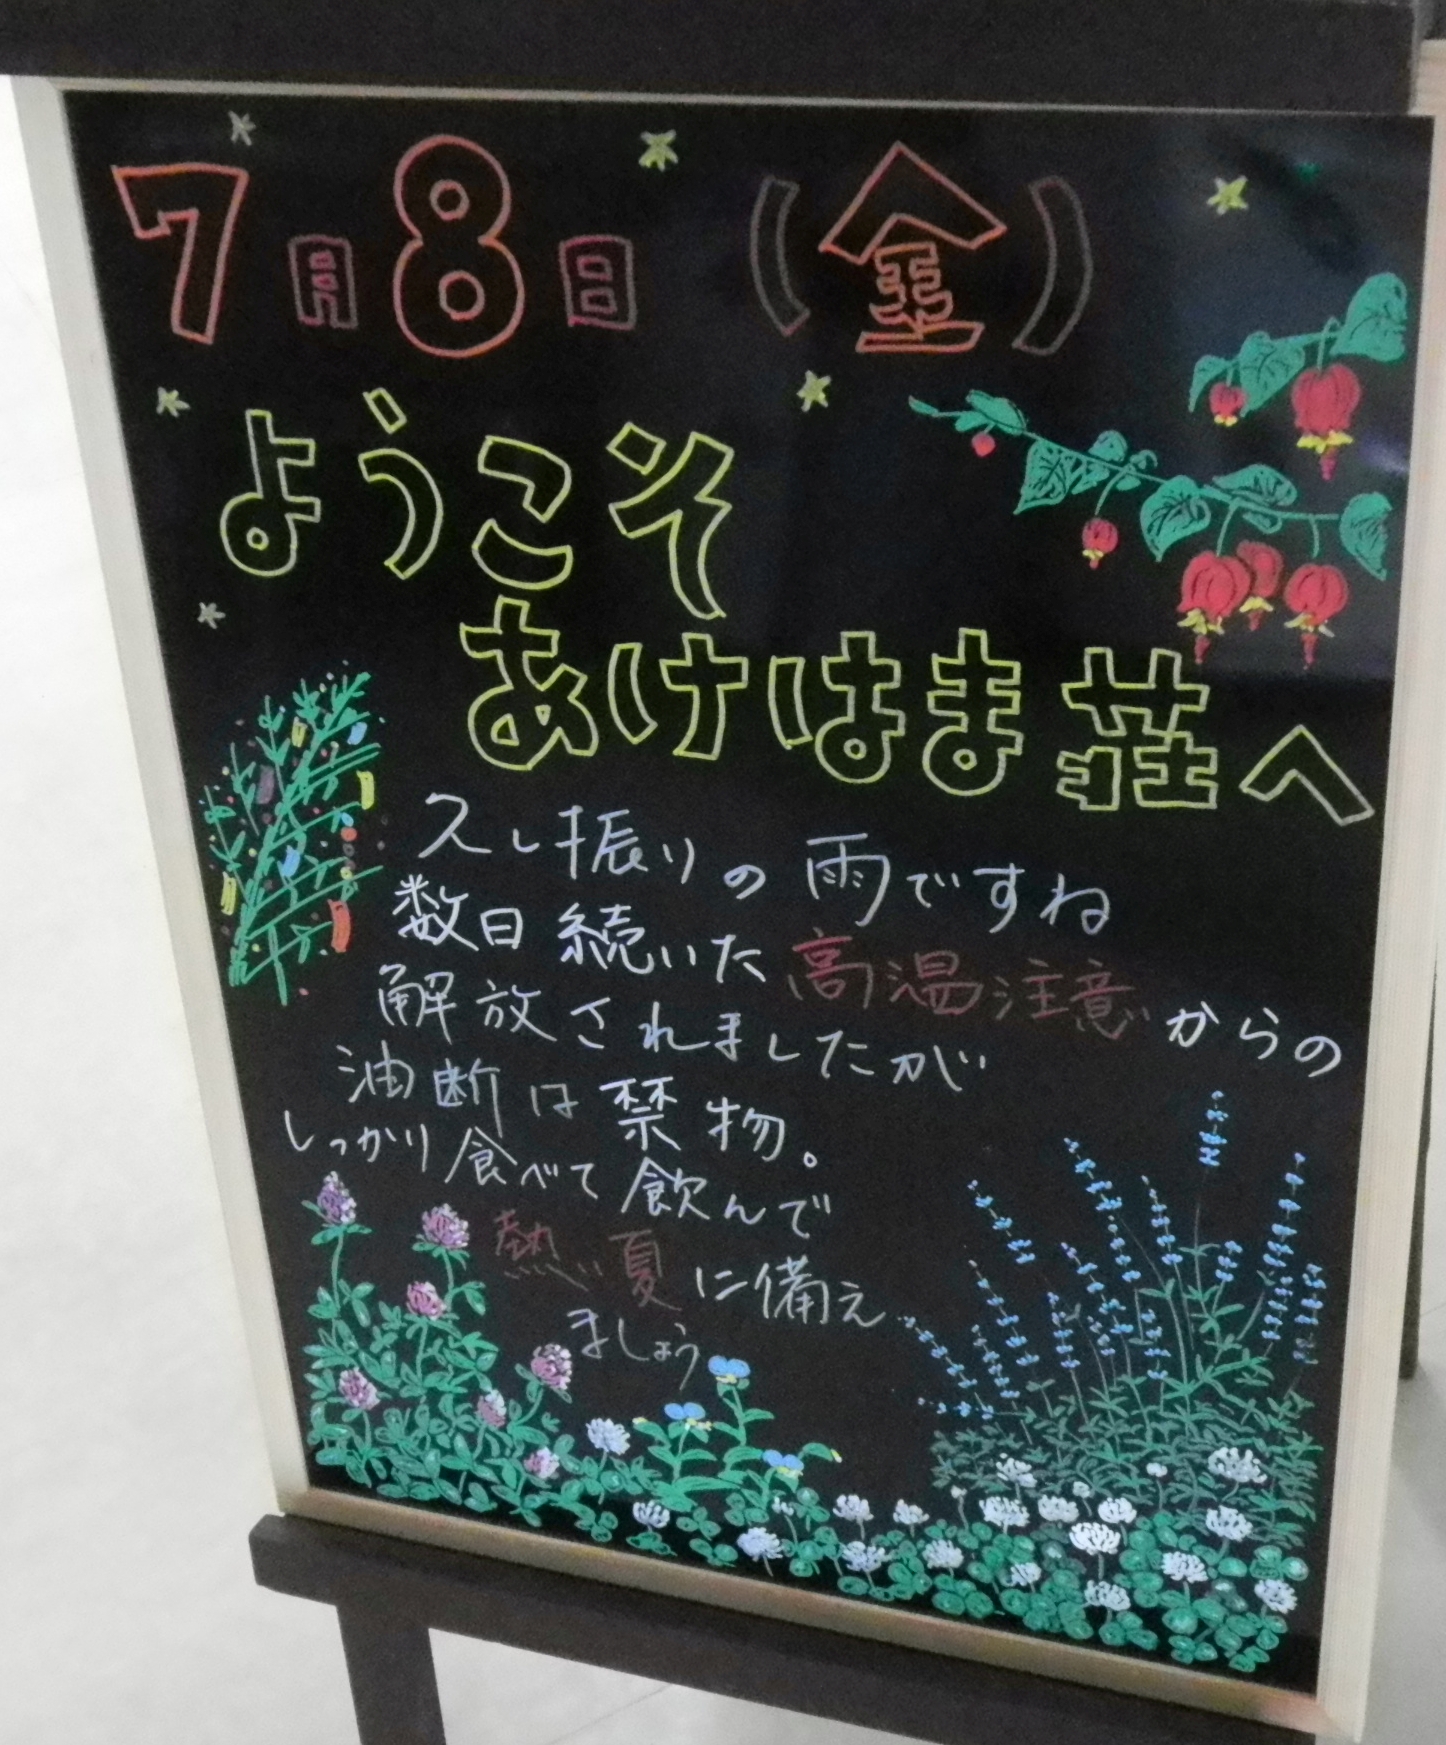 7月8日(金)
ようこそ
あけはま荘へ
久し振りの雨ですね
数日続いた高温注意からの
解放されましたが
油断は禁物。
しっかり食べて飲んで
熱い夏に備え
ましょう